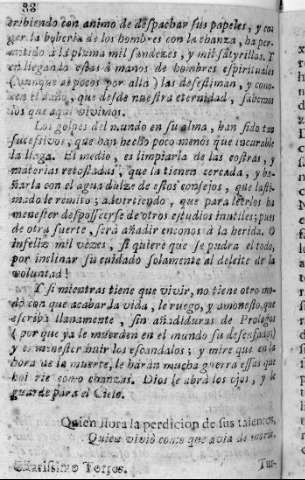 22
cribiendo con animo de despachar sus papeles, y co-
ger la boberia de los hombres con la chanza, ha per-
mitido à la pluma mil sandezes, y mil satyrillas. Y
en llegando estas à manos de hombres espirituales
(aunque ay pocos por allà) las desestiman, y cono-
cen el daño, que desde nuestra eternidad, sabemos
los que aqui vivimos.
Los golpes del mundo en su alma, han sido tan
sucessivos, que han hecho poco menos que incurable
la llaga. El medio, es limpiarla de las costras, y
materias retostadas, que la tienen cercada, y ba-
ñarla con el agua dulze de estos consejos, que lasti-
mado le remito; advirtiendo, que para leerlos ha
menester despossèerse de otros estudios inutiles; pues
de otra suerte, serà añadir enconos à la herida. O
infeliz mil vezes, si quiere que se pudra el todo,
por inclinar su cuidado solamente al deleite de la
voluntad!
Y si mientras tiene que vivir, no tiene otro mo-
do con que acabar la vida, le ruego, y amonesto, que
escriba llanamente, sin añadiduras de Prologos
(por que ya le muerden en el mundo su desenfado)
y es menester huir los escandalos; y mire que en la
hora de la muerte, le haràn mucha guerra essas que
hoi rie como chanzas. Dios le abra los ojos, y le
guarde para el Cielo.
Quien llora la perdicion de sus talentos,
Quien viviò como que avia de morir.
Charissimo Torres.
Tor-